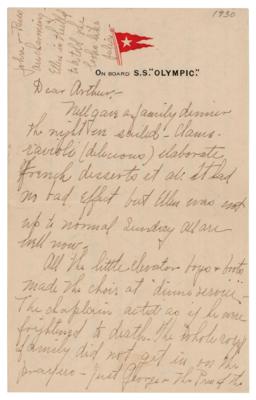 1930
ON BOARD S.S. "OLYMPIC."
Dear Arthur,-
Nell gave a family dinner
the night we sailed - Clams -
ravioli (delicious) elaborate
french desserts et al: it had
no bad effect but Ellen was not
up to normal Sunday. All are
well now.
All the little elevator boys & boots
made the choir at "divine service" -
The chaplain acted as if he were
frightened to death. The whole royal
family did not get in on the
prayers - Just George & the Prin of the